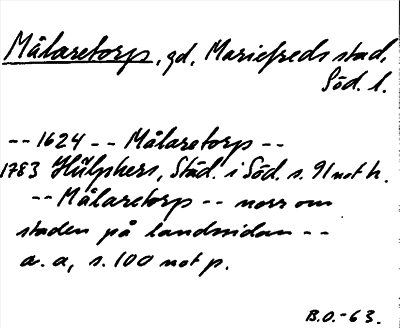 Målaretorp, gd, Mariefreds stad,
Söd. l.
-- 1624 -- Målaretorp --
1783 Hülphers, Städ. i Söd. s. 91 not h.
-- Målaretorp -- norr om
staden på landssidan --
a. a, s. 100 not p.
B.O.-63.